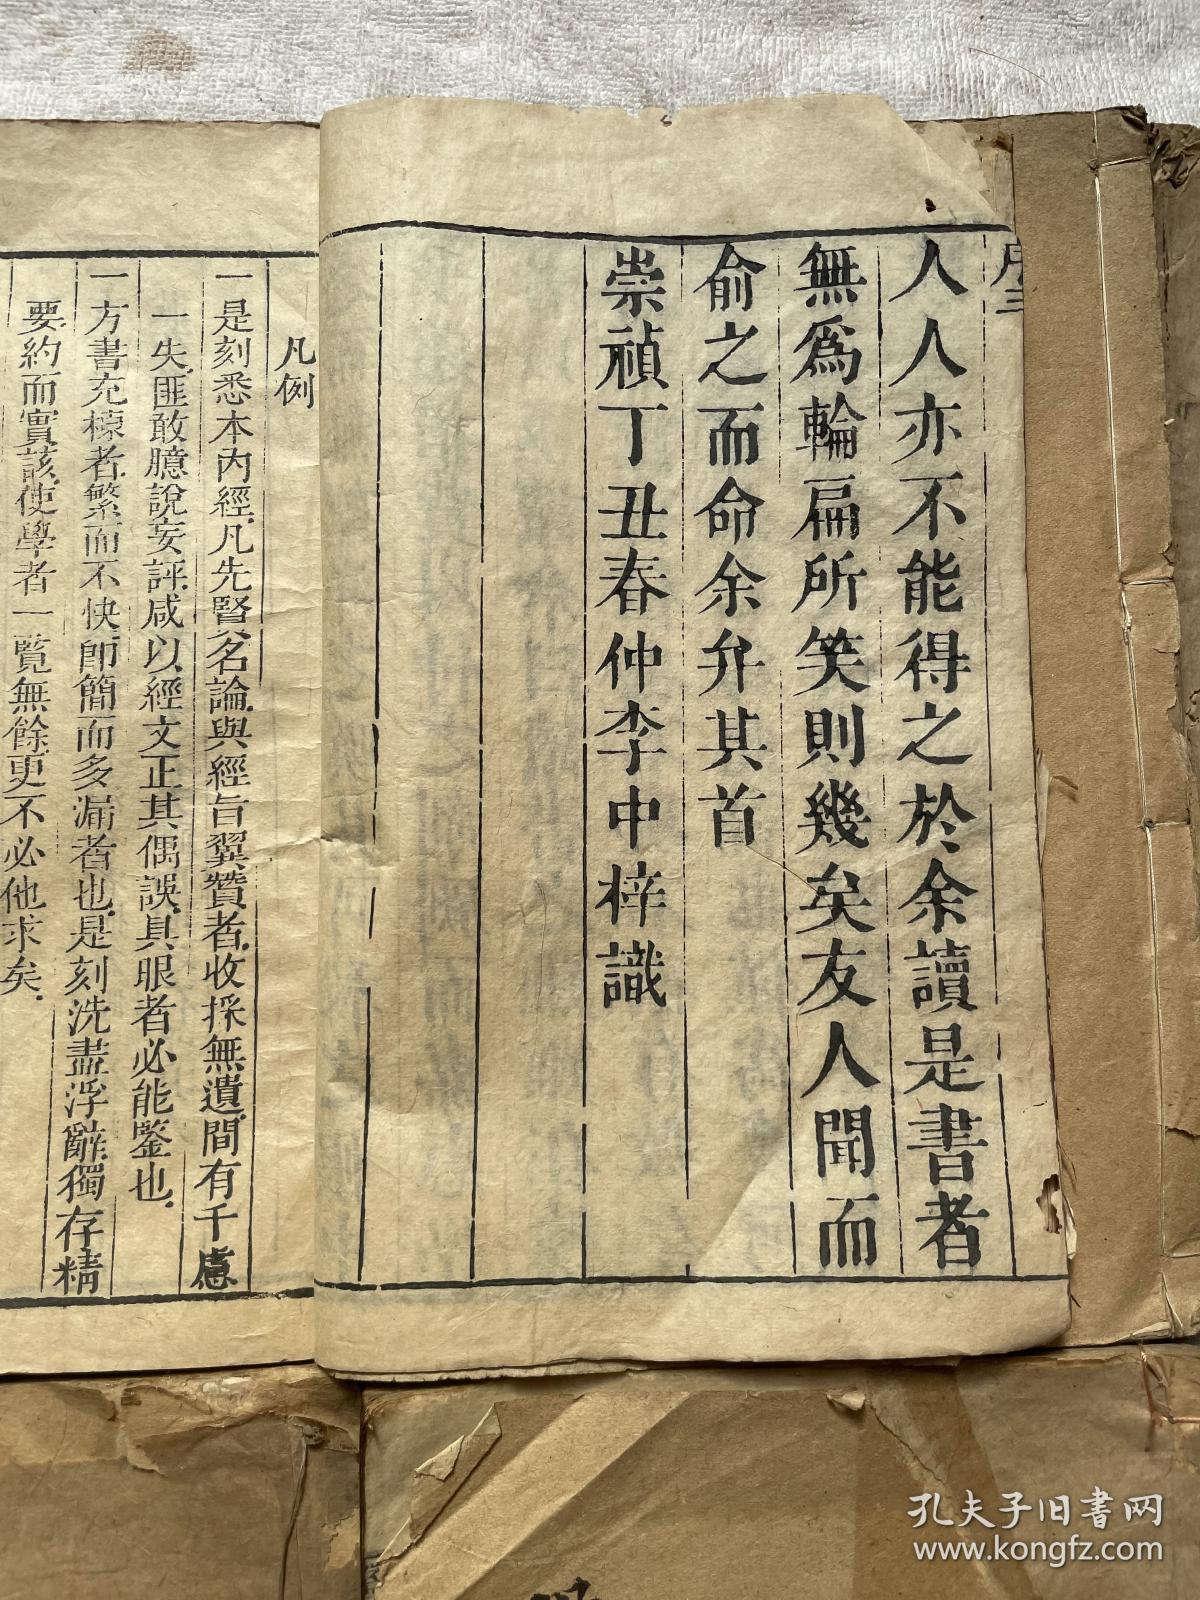 序三
人人亦不能得之於余讀是書者
無爲輪扁所笑則幾矣友人聞而
俞之而命余弁其首
崇禎丁丑春仲李中梓識
凡例
一是刻悉本內經凡先賢名論與經旨翼贊者收採無遺間有千慮
一失匪敢臆說妄評咸以經文正其偶誤具眼者必能鑒也
一方書充棟者繁而不快卽簡而多漏者也是刻洗盡浮辭獨存精
要約而實該使學者一覽無餘更不必他求矣
孔夫子旧书网
www.kongfz.com